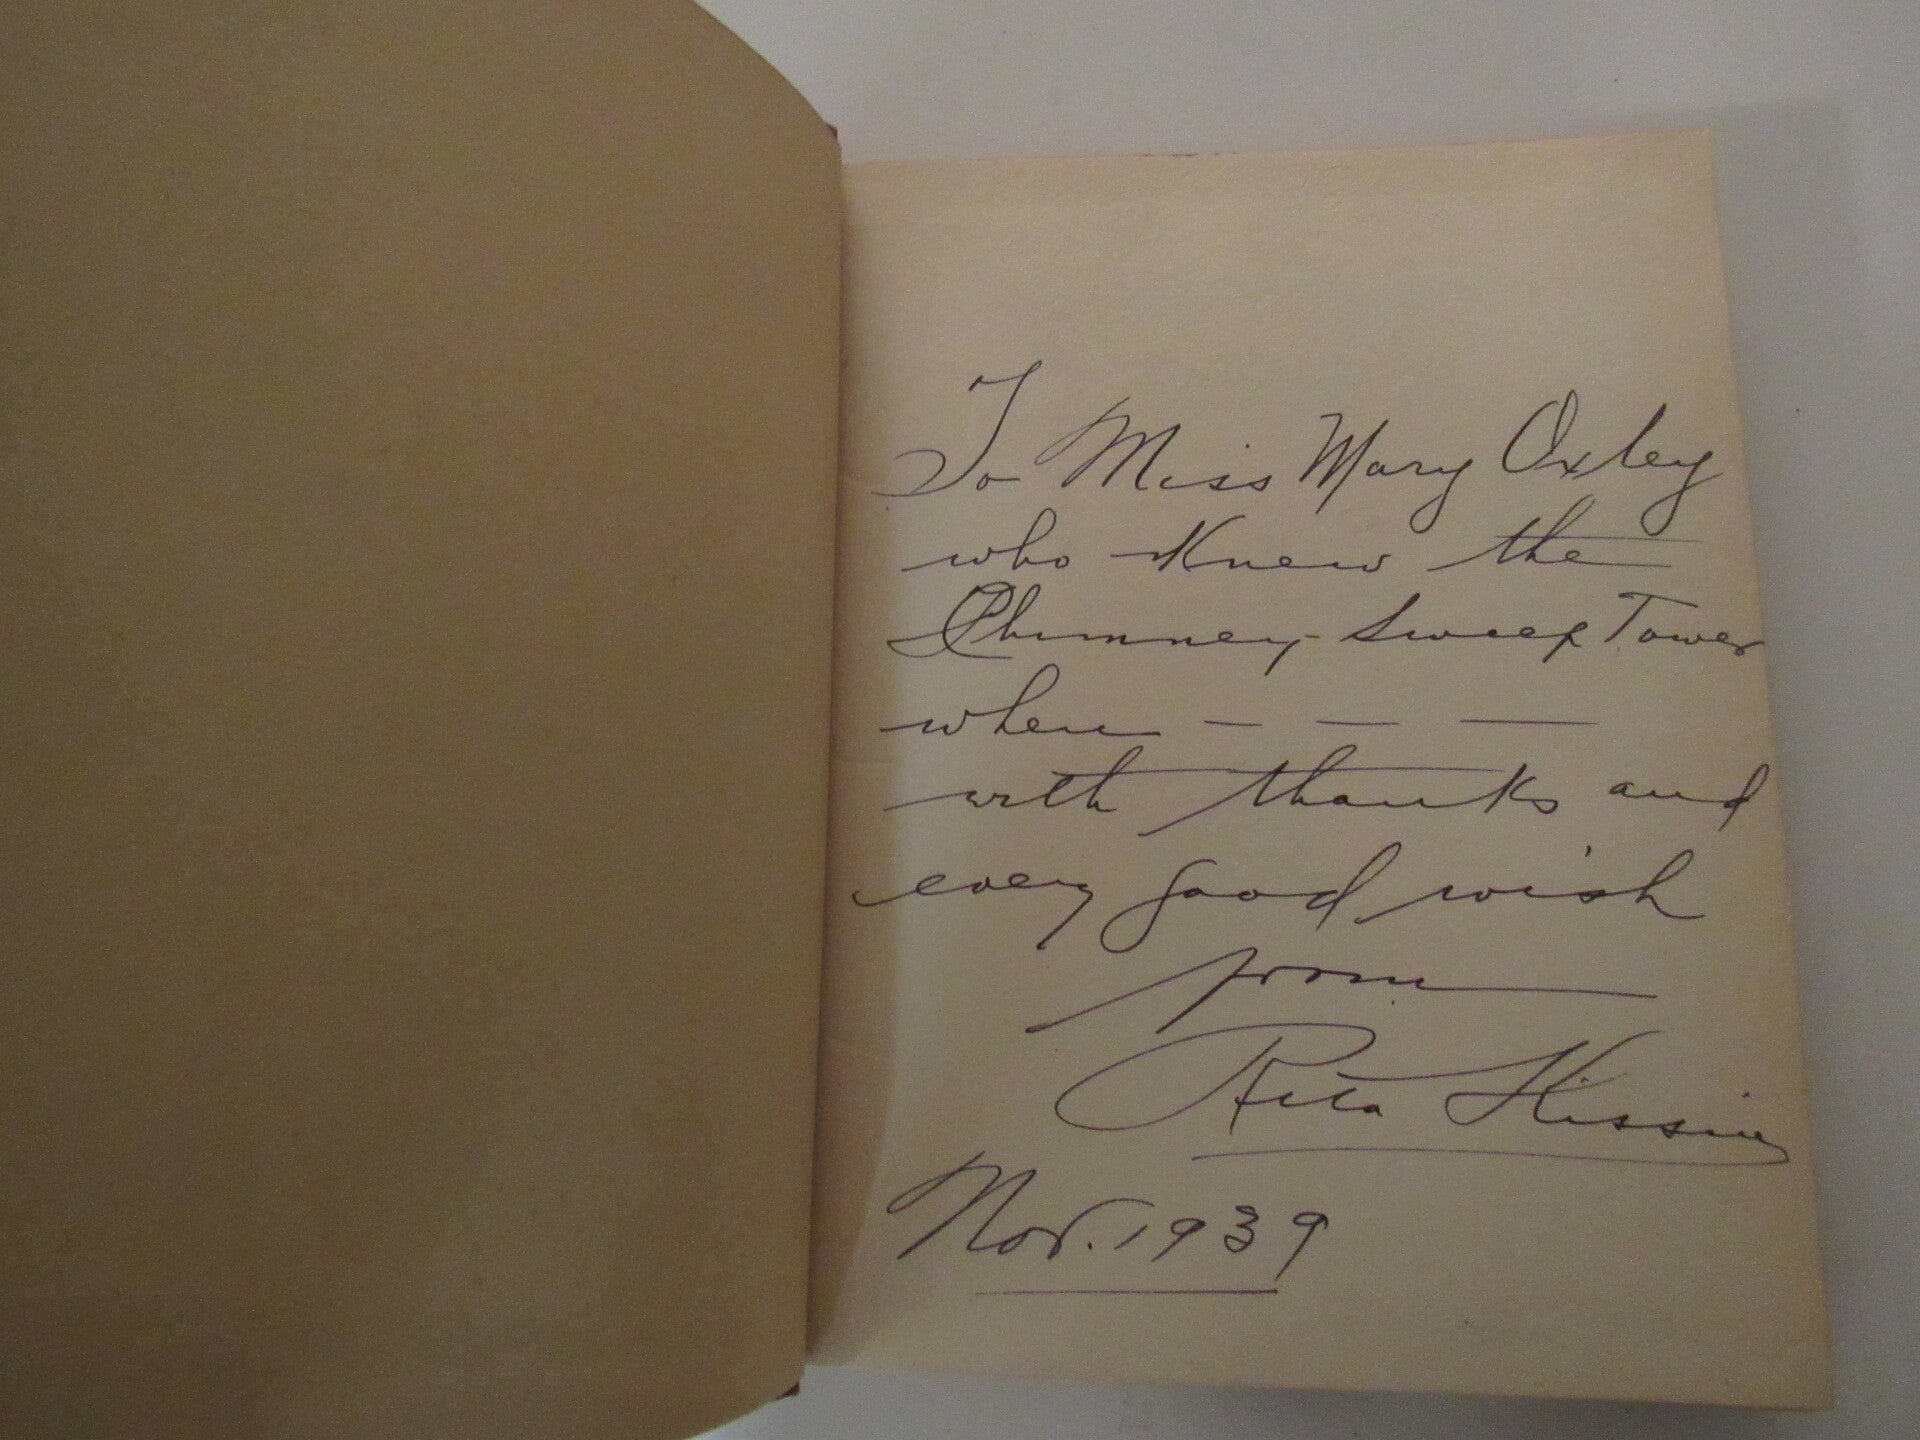 To Miss Mary Oxley
who knew the
Chimney-Sweep Tower
when — — —
with thanks and
every good wish
from
Rita Kissin
Nov. 1939